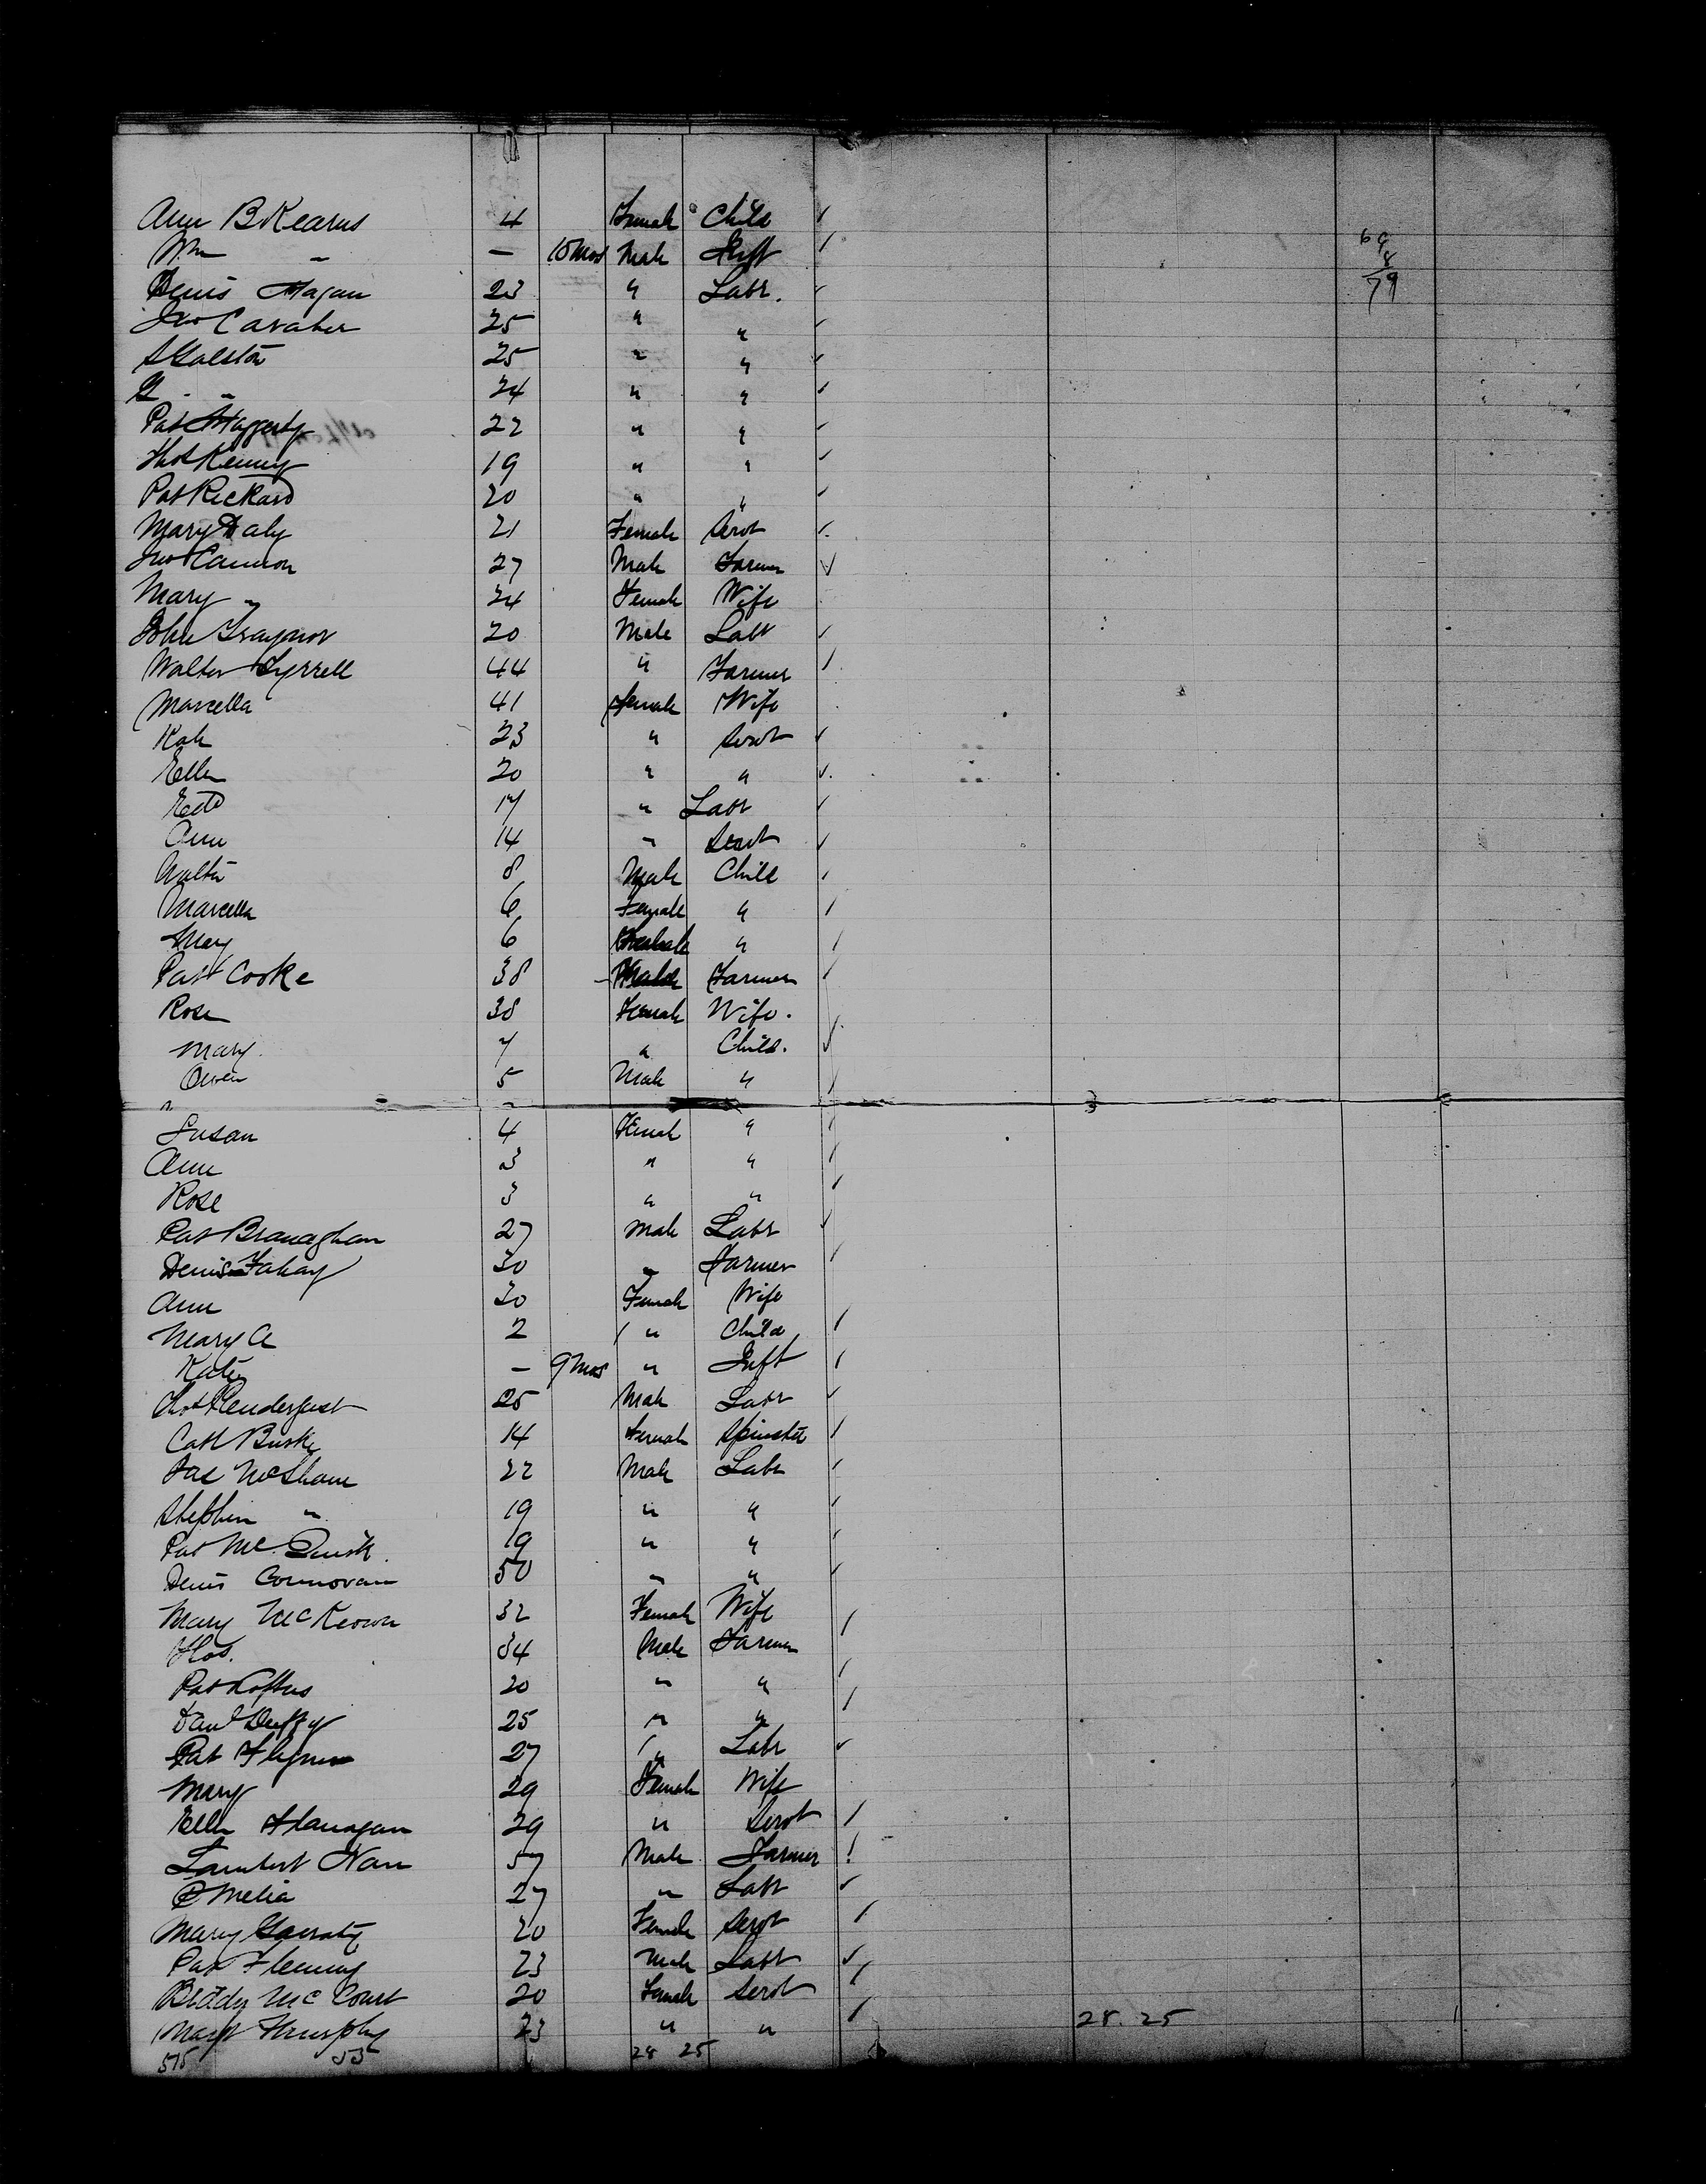 Ann B Kearns 4 Female Child
Wm " — 10 Mos Male Inft
Denis Hagan 23 " Labr.
Jno Cavaher 25 " "
S Galston 25 " "
G " 24 " "
Pat Haggerty 22 " "
Thos Kenny 19 " "
Pat Rickard 20 " "
Mary Daly 21 Female Servt
Jno Cannon 27 Male Farmer
Mary " 24 Female Wife
John Traynor 20 Male Labr
Walter Tyrrell 44 " Farmer
Marcella 41 Female Wife
Kate 23 " Servt
Ellen 20 " "
Edd 17 " Labr
Ann 14 " Servt
Walter 8 Male Child
Marcella 6 Female "
Mary 6 Female "
Patt Cooke 38 Male Farmer
Rose 38 Female Wife.
Mary. 7 " Child.
Owen 5 Male "
Susan 4 Female "
Ann 3 " "
Rose 3 " "
Pat Branaghan 27 Male Labr
Denis Fahay 30 " Farmer
Ann 30 Female Wife
Mary A 2 " Child
Kate — 9 Mos " Inft
Thos Pendergast 25 Male Labr
Cath Burke 14 Female Spinster
Jas McShane 22 Male Labr
Stephen " 19 " "
Pat Mc Quirk. 19 " "
Denis Connovan 50 " "
Mary McKeown 32 Female Wife
Thos. 34 Male Farmer
Pat Loftus 20 " "
Danl Duffy 25 " "
Pat Flynn 27 " Labr
Mary 29 Female Wife
Ellen Flanagan 29 " Servt
Lambert 57 Male Farmer
P Melia 27 " Labr
Mary Garraty 20 Female Servt
Pat Fleming 23 Male Labr
Biddy Mc Court 20 Female Servt
Margt Murphy 23 " "
575 53 28 25
69
8
79
28. 25